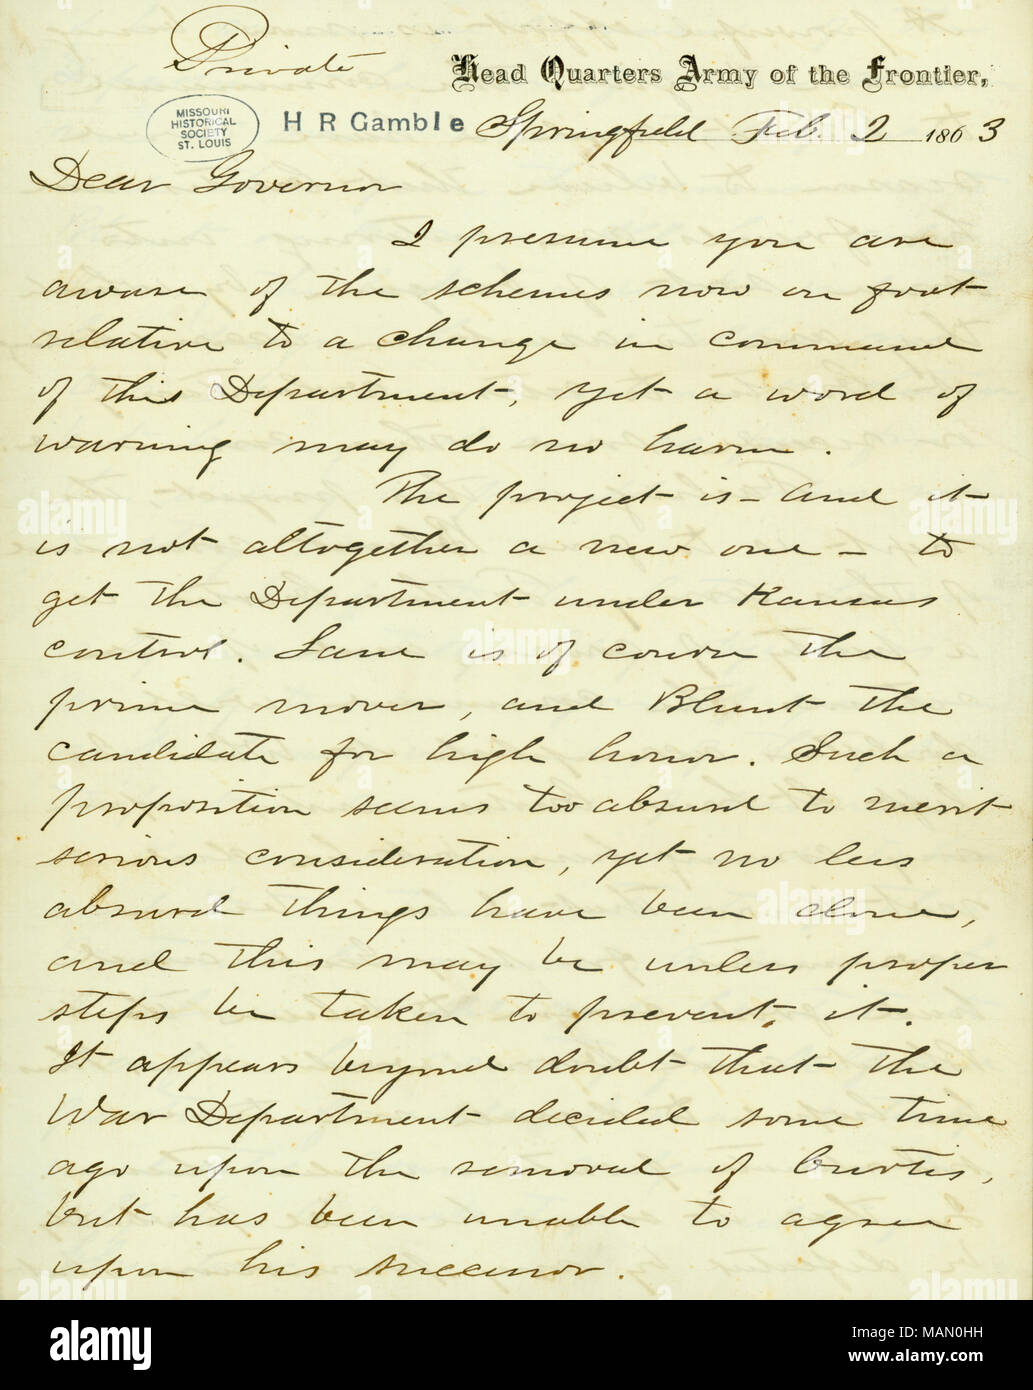 Private
Head Quarters Army of the Frontier,
MISSOURI
HISTORICAL
SOCIETY
ST. LOUIS
H R Gamble
Springfield Feb. 2 1863
Dear Governor
I presume you are
aware of the schemes now on foot
relative to a change in command
of this Department, yet a word of
warning may do no harm.
The project is - and it
is not altogether a new one - to
get the Department under Kansas
control. Lane is of course the
prime mover, and Blunt the
candidate for high honor. Such a
proposition seems too absurd to merit
serious consideration, yet no less
absurd things have been done,
and this may be unless proper
steps be taken to prevent it.
It appears beyond doubt that the
War Department decided some time
ago upon the removal of Curtis,
but has been unable to agree
upon his successor.
alamy
Image ID: MAN0HH
www.alamy.com